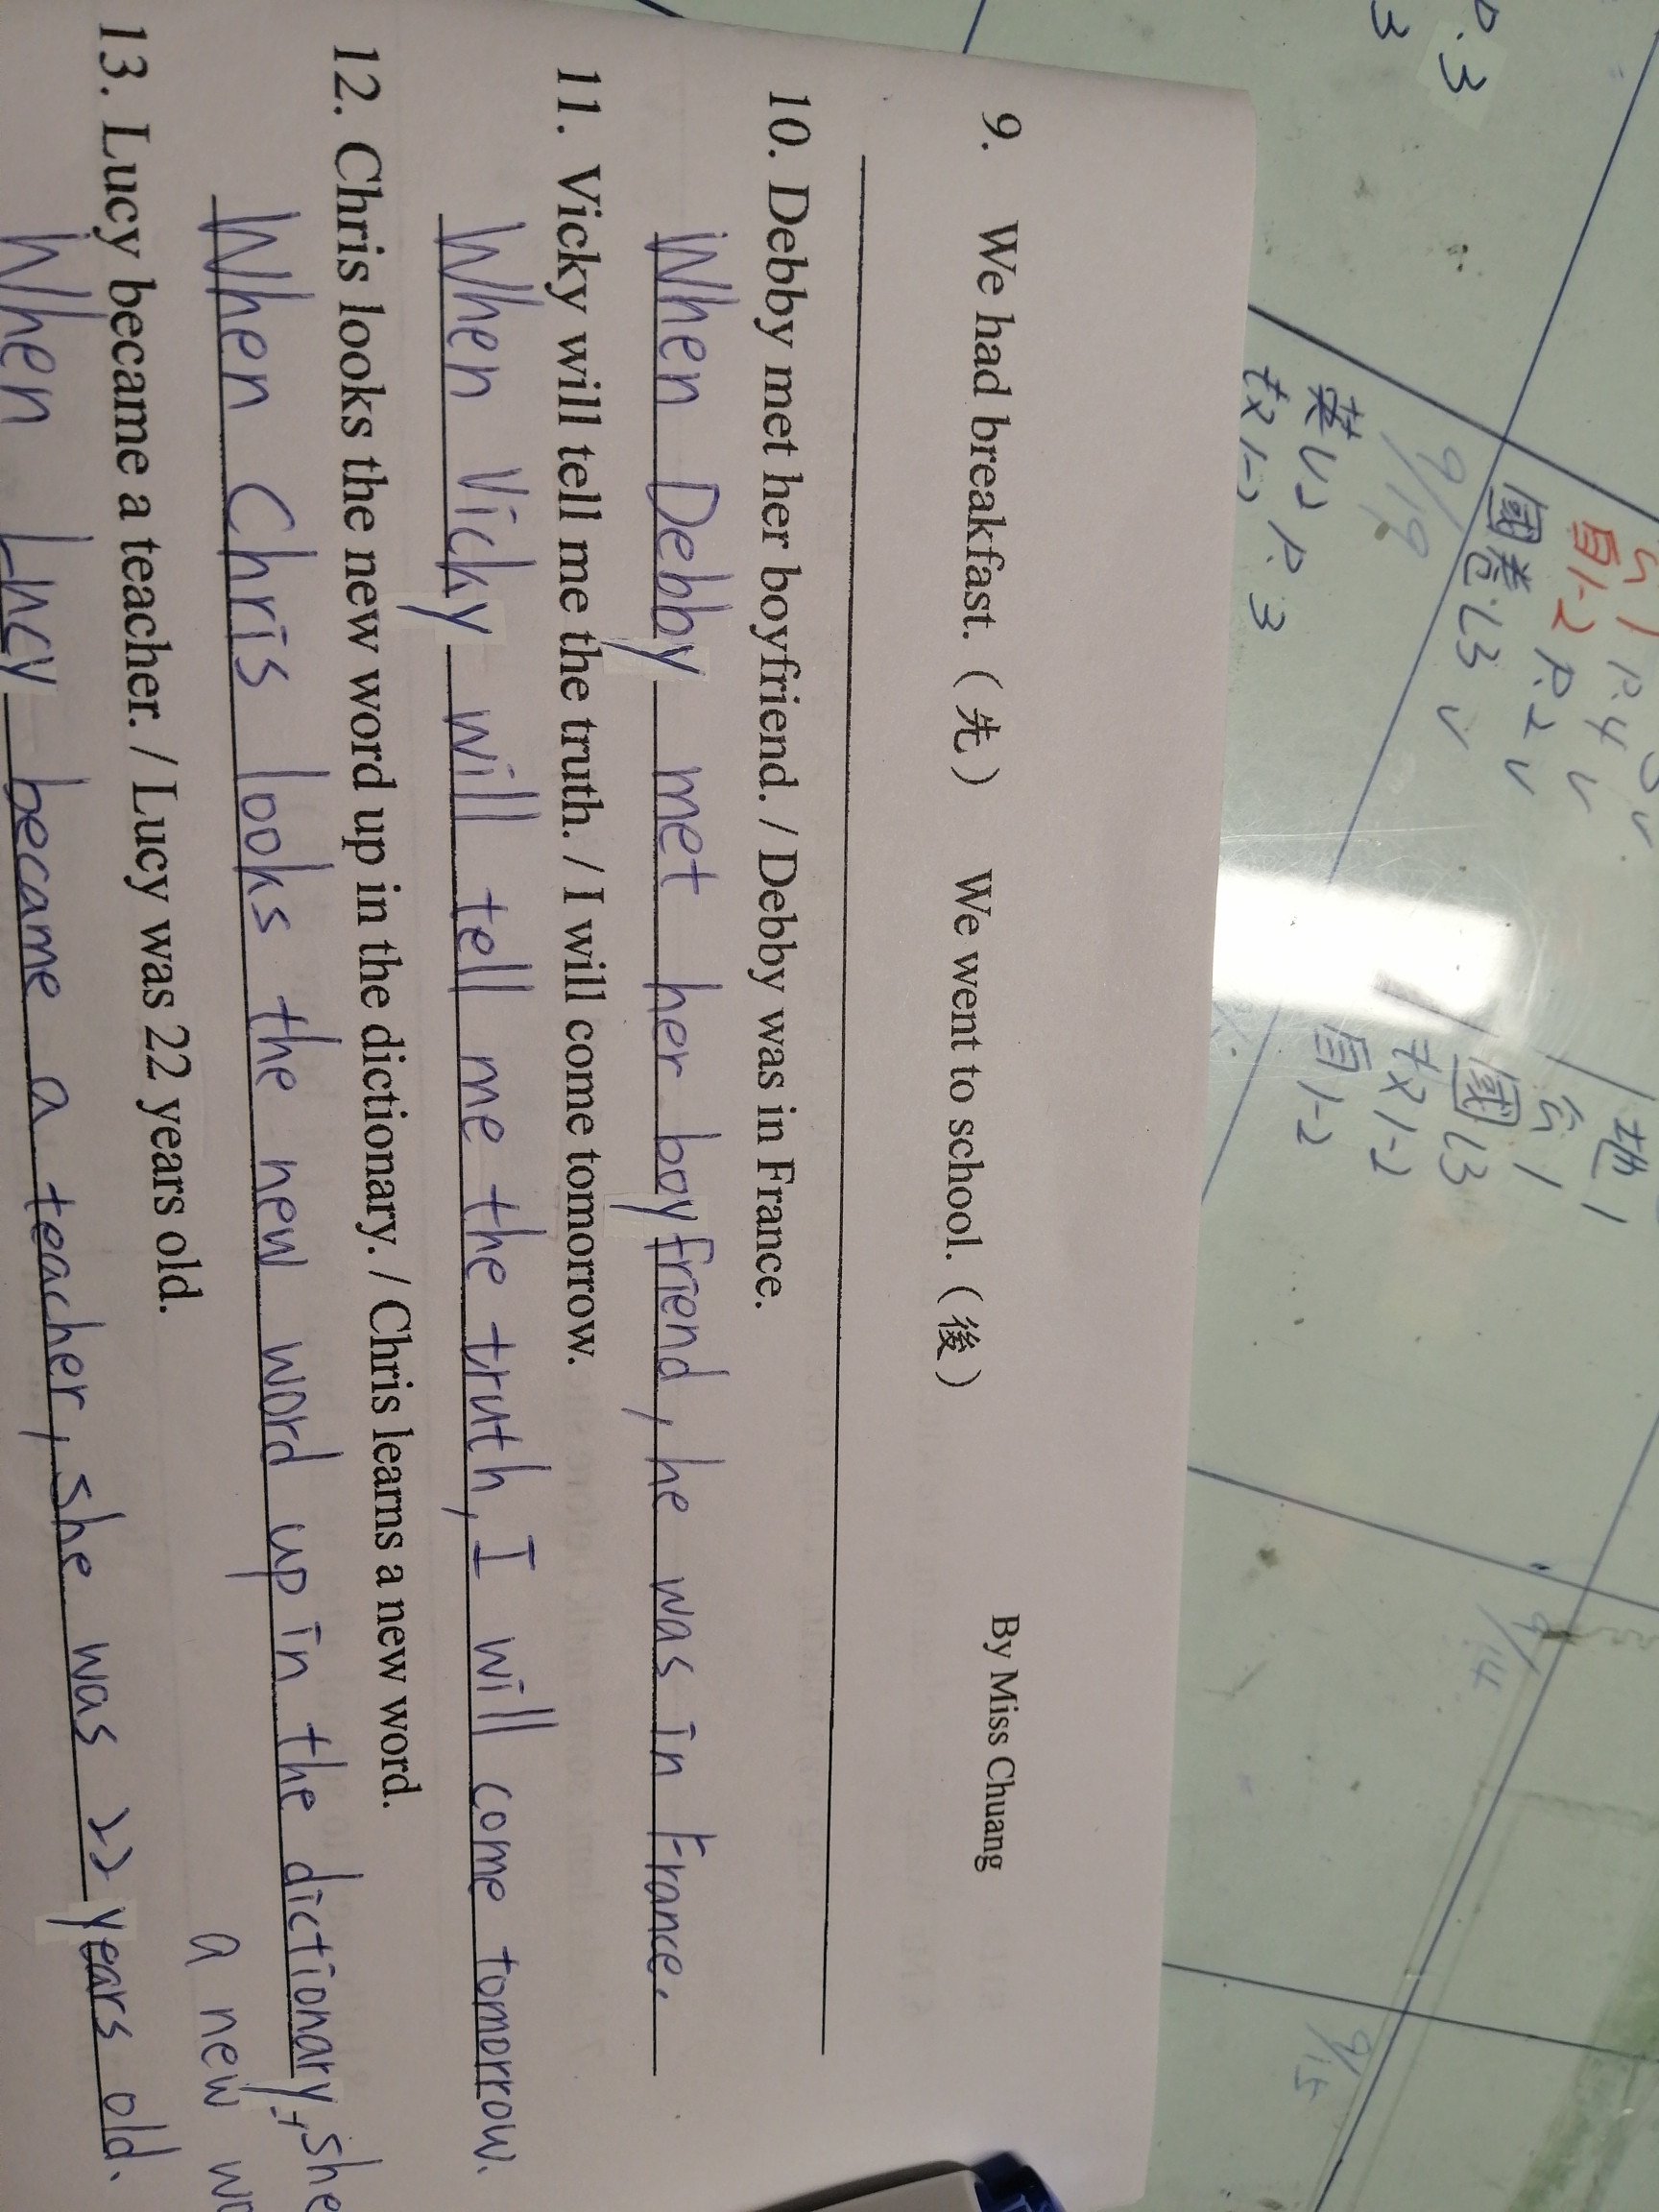 By Miss Chuang
9. We had breakfast.（先） We went to school.（後）
10. Debby met her boyfriend. / Debby was in France.
When Debby met her boyfriend, he was in France.
11. Vicky will tell me the truth. / I will come tomorrow.
When Vicky will tell me the truth, I will come tomorrow.
12. Chris looks the new word up in the dictionary. / Chris learns a new word.
When Chris looks the new word up in the dictionary, she
a new
13. Lucy became a teacher. / Lucy was 22 years old.
When Lucy became a teacher, she was 22 years old.
P.3
3
自1-2 P.2 v
國卷L3 v
9/19
英L2 P.3
數1-2
地1
公1
國L3
數1-2
自1-2
9/14
9/15